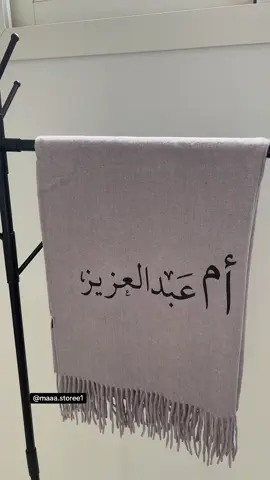 أم عبدالعزيز
@maaa.storee1